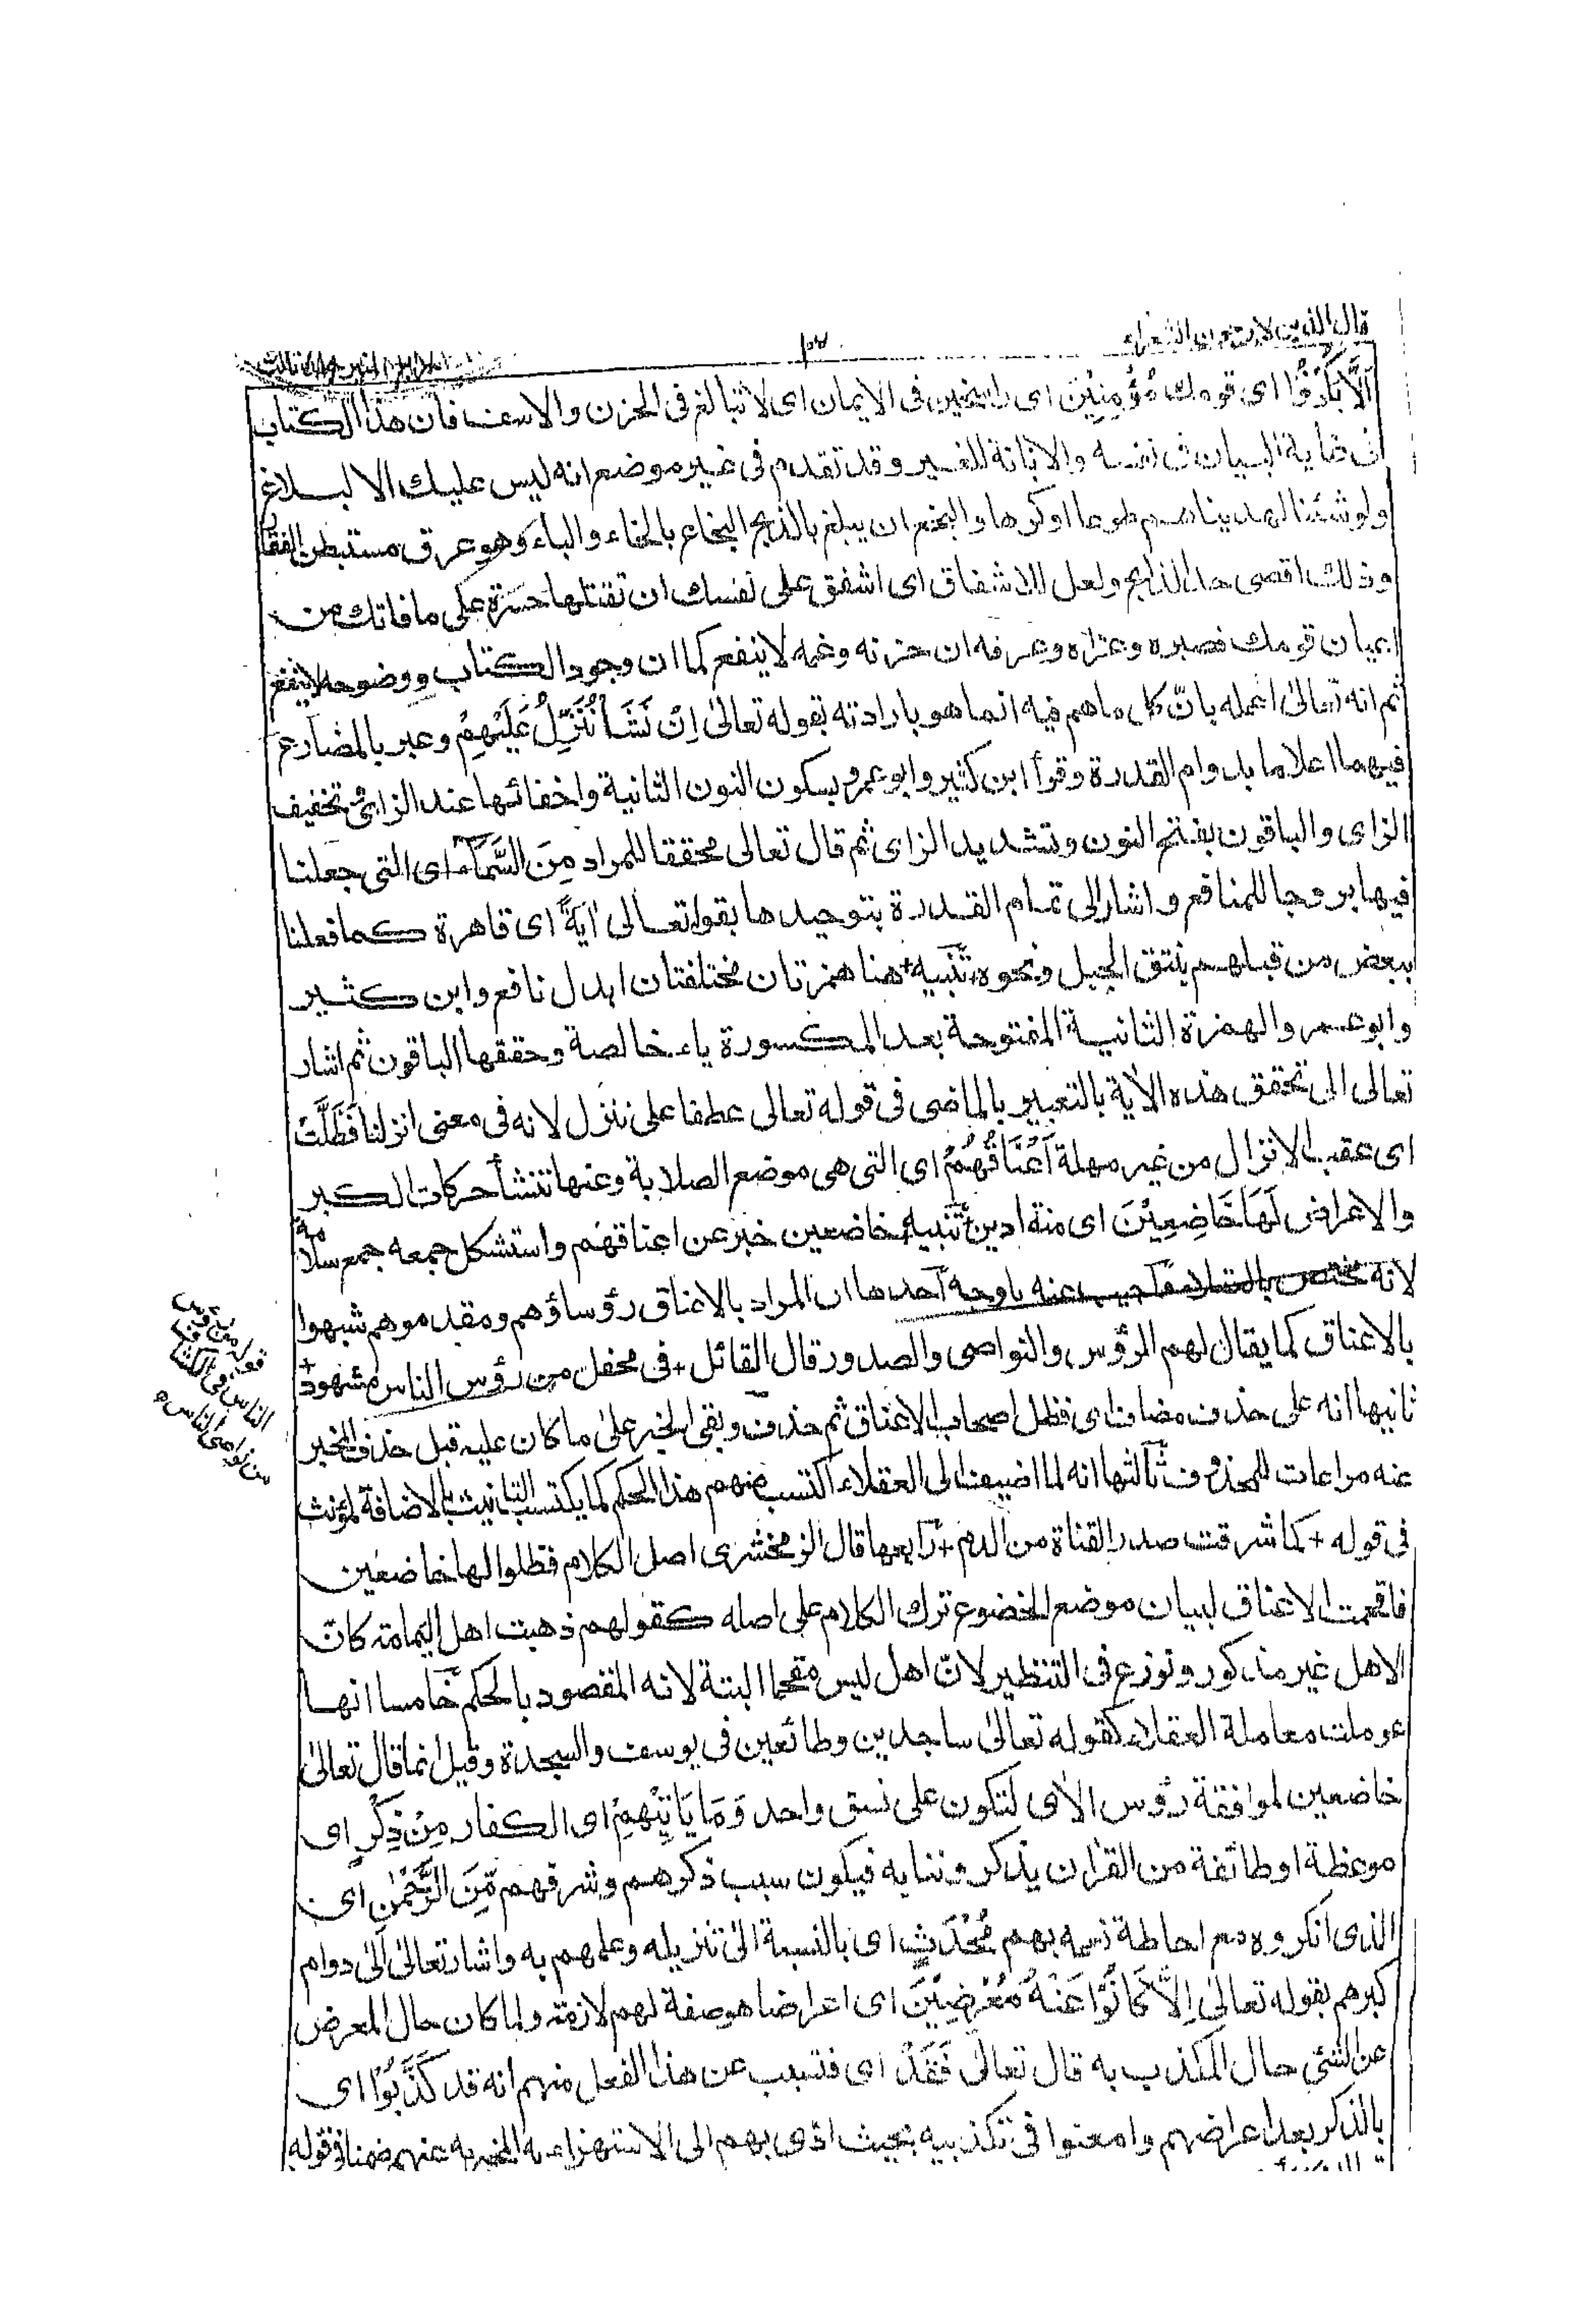 قال الذين لا يرجون الشعراء
اَلَّا يَكُوْنُوْا اى قومك مُؤْمِنِيْنَ اى راسخين فى الايمان اى لا تبالغ فى الحزن والاسف فان هذا الكتاب
فى غاية البيان فى نفسه والابانة للغير وقد تقدم فى غير موضع انه ليس عليك الا البلاغ
ولو شئنا لهديناهم طوعا او كرها والبخع ان يبلغ بالذبح البخاع بالخاء والباء وهو عرق مستبطن الفقار
وذلك اقصى حد الذابح ولعل للاشفاق اى اشفق على نفسك ان تقتلها حسرة على ما فاتك من
ايمان قومك فصبره وعزاه وعرفه ان حزنه وغمه لا ينفع كما ان وجود الكتاب ووضوحه لا ينفع
ثم انه تعالىٰ اعمله بانّ كل ماهم فيه انما هو بارادته بقوله تعالىٰ اِنْ نَشَأْ نُنَزِّلْ عَلَيْهِمْ وعبر بالمضارع
فيهما اعلاما بدوام القدرة وقرأ ابن كثير وابو عمرو بسكون النون الثانية واخفائها عند الزاى تخفيف
الزاى والباقون بفتح النون وتشديد الزاى ثم قال تعالى محققا للمراد مِنَ السَّمَآءِ اى التى جعلنا
فيها بروجا للمنافع واشار الى تمام القدرة بتوحيدها بقوله تعالى اٰيَةً اى قاهرة كما فعلنا
ببعض من قبلهم بنتق الجبل ونحوه، تَنْبِيه+ هنا همزتان مختلفتان ابدل نافع وابن كثير
وابو عمرو الهمزة الثانية المفتوحة بعد المكسورة ياء خالصة وحققها الباقون ثم اشار
تعالى الى تحقق هذه الاٰية بالتعبير بالماضى فى قوله تعالى عطفا على ننزل لانه فى معنى انزلنا فَظَلَّتْ
اى عقب الانزال من غير مهلة اَعْنَاقُهُمْ اى التى هى موضع الصلابة وعنها تنشأ حركات الكبر
والاعراض لَهَا خَاضِعِيْنَ اى منقادين تَنْبِيه خاضعين خبر عن اعناقهم واستشكل جمعه جمع سلامة
لانه مختص بالعقلاء اجيب عنه باوجه احدها ان المراد بالاعناق رؤساؤهم ومقدموهم شبهوا
بالاعناق كما يقال لهم الرؤس والنواصى والصدور قال القائل + فى محفل من رؤس الناس مشهود +
ثانيها انه على حذف مضاف اى فظل اصحاب الاعناق ثم حذف وبقى الخبر علىٰ ما كان عليه قبل حذف المخبر
عنه مراعات للمحذوف ثالثها انه لما اضيفت الى العقلاء اكتسب منهم هذا الحكم كما يكتسب التانيث بالاضافة لمؤنث
فى قوله + كما شرقت صدر القناة من الدم + رابعها قال الزمخشرى اصل الكلام فظلوا لها خاضعين
فاقحمت الاعناق لبيان موضع الخضوع ترك الكلام على اصله كقولهم ذهبت اهل اليمامة كانّ
الاهل غير مذكور ونوزع فى التنظير لانّ اهل ليس مقحما البتة لانه المقصود بالحكم خامسا انها
عوملت معاملة العقلاء كقوله تعالىٰ ساجدين وطائعين فى يوسف والسجدة وقيل انما قال تعالىٰ
خاضعين لموافقة رؤس الاٰى لتكون على نسق واحد وَمَا يَاْتِيْهِمْ اى الكفار مِنْ ذِكْرٍ اى
موعظة او طائفة من القراٰن يذكروننا به فيكون سبب ذكرهم وشرفهم مِّنَ الرَّحْمٰنِ اى
الذى انكروه مع احاطة نعمه بهم مُحْدَثٍ اى بالنسبة الىٰ تنزيله وعلمهم به واشار تعالىٰ الىٰ دوام
كبرهم بقوله تعالىٰ اِلَّا كَانُوْا عَنْهُ مُعْرِضِيْنَ اى اعراضا هو صفة لهم لازمة ولما كان حال المعرض
عن الشئ حال المكذب به قال تعالىٰ فَقَدْ اى فتسبب عن هذا الفعل منهم انه قد كَذَّبُوْا اى
بالذكر بعد اعراضهم وامعنوا فى تكذيبه بحيث ادى بهم الى الاستهزاء به المخبر به عنهم ضمنا فى قوله
قوله من رؤس
الناس فى الكشاف
من نواصى الناس